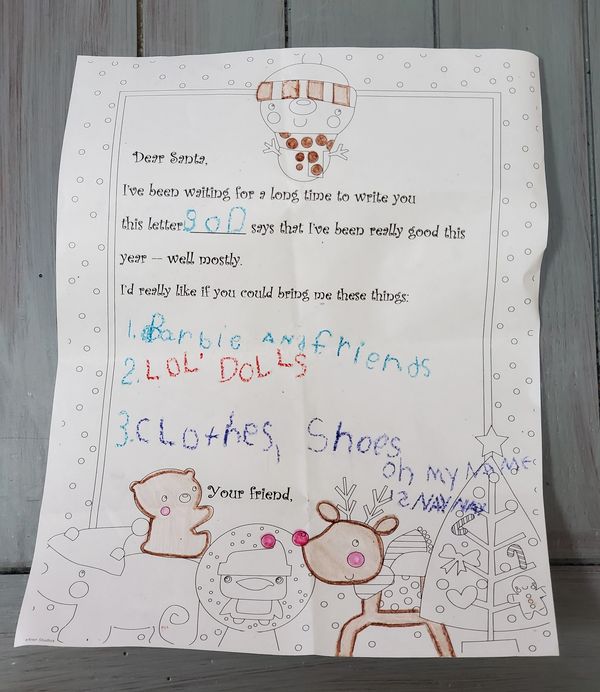 Dear Santa,
I've been waiting for a long time to write you
this letter GOD says that I've been really good this
year – well mostly.
I'd really like if you could bring me these things:
1. Barbie and friends
2. LOL' DOLLS
3. CLothes, Shoes
Oh MY NAME
IS NAY NAY
Your friend,